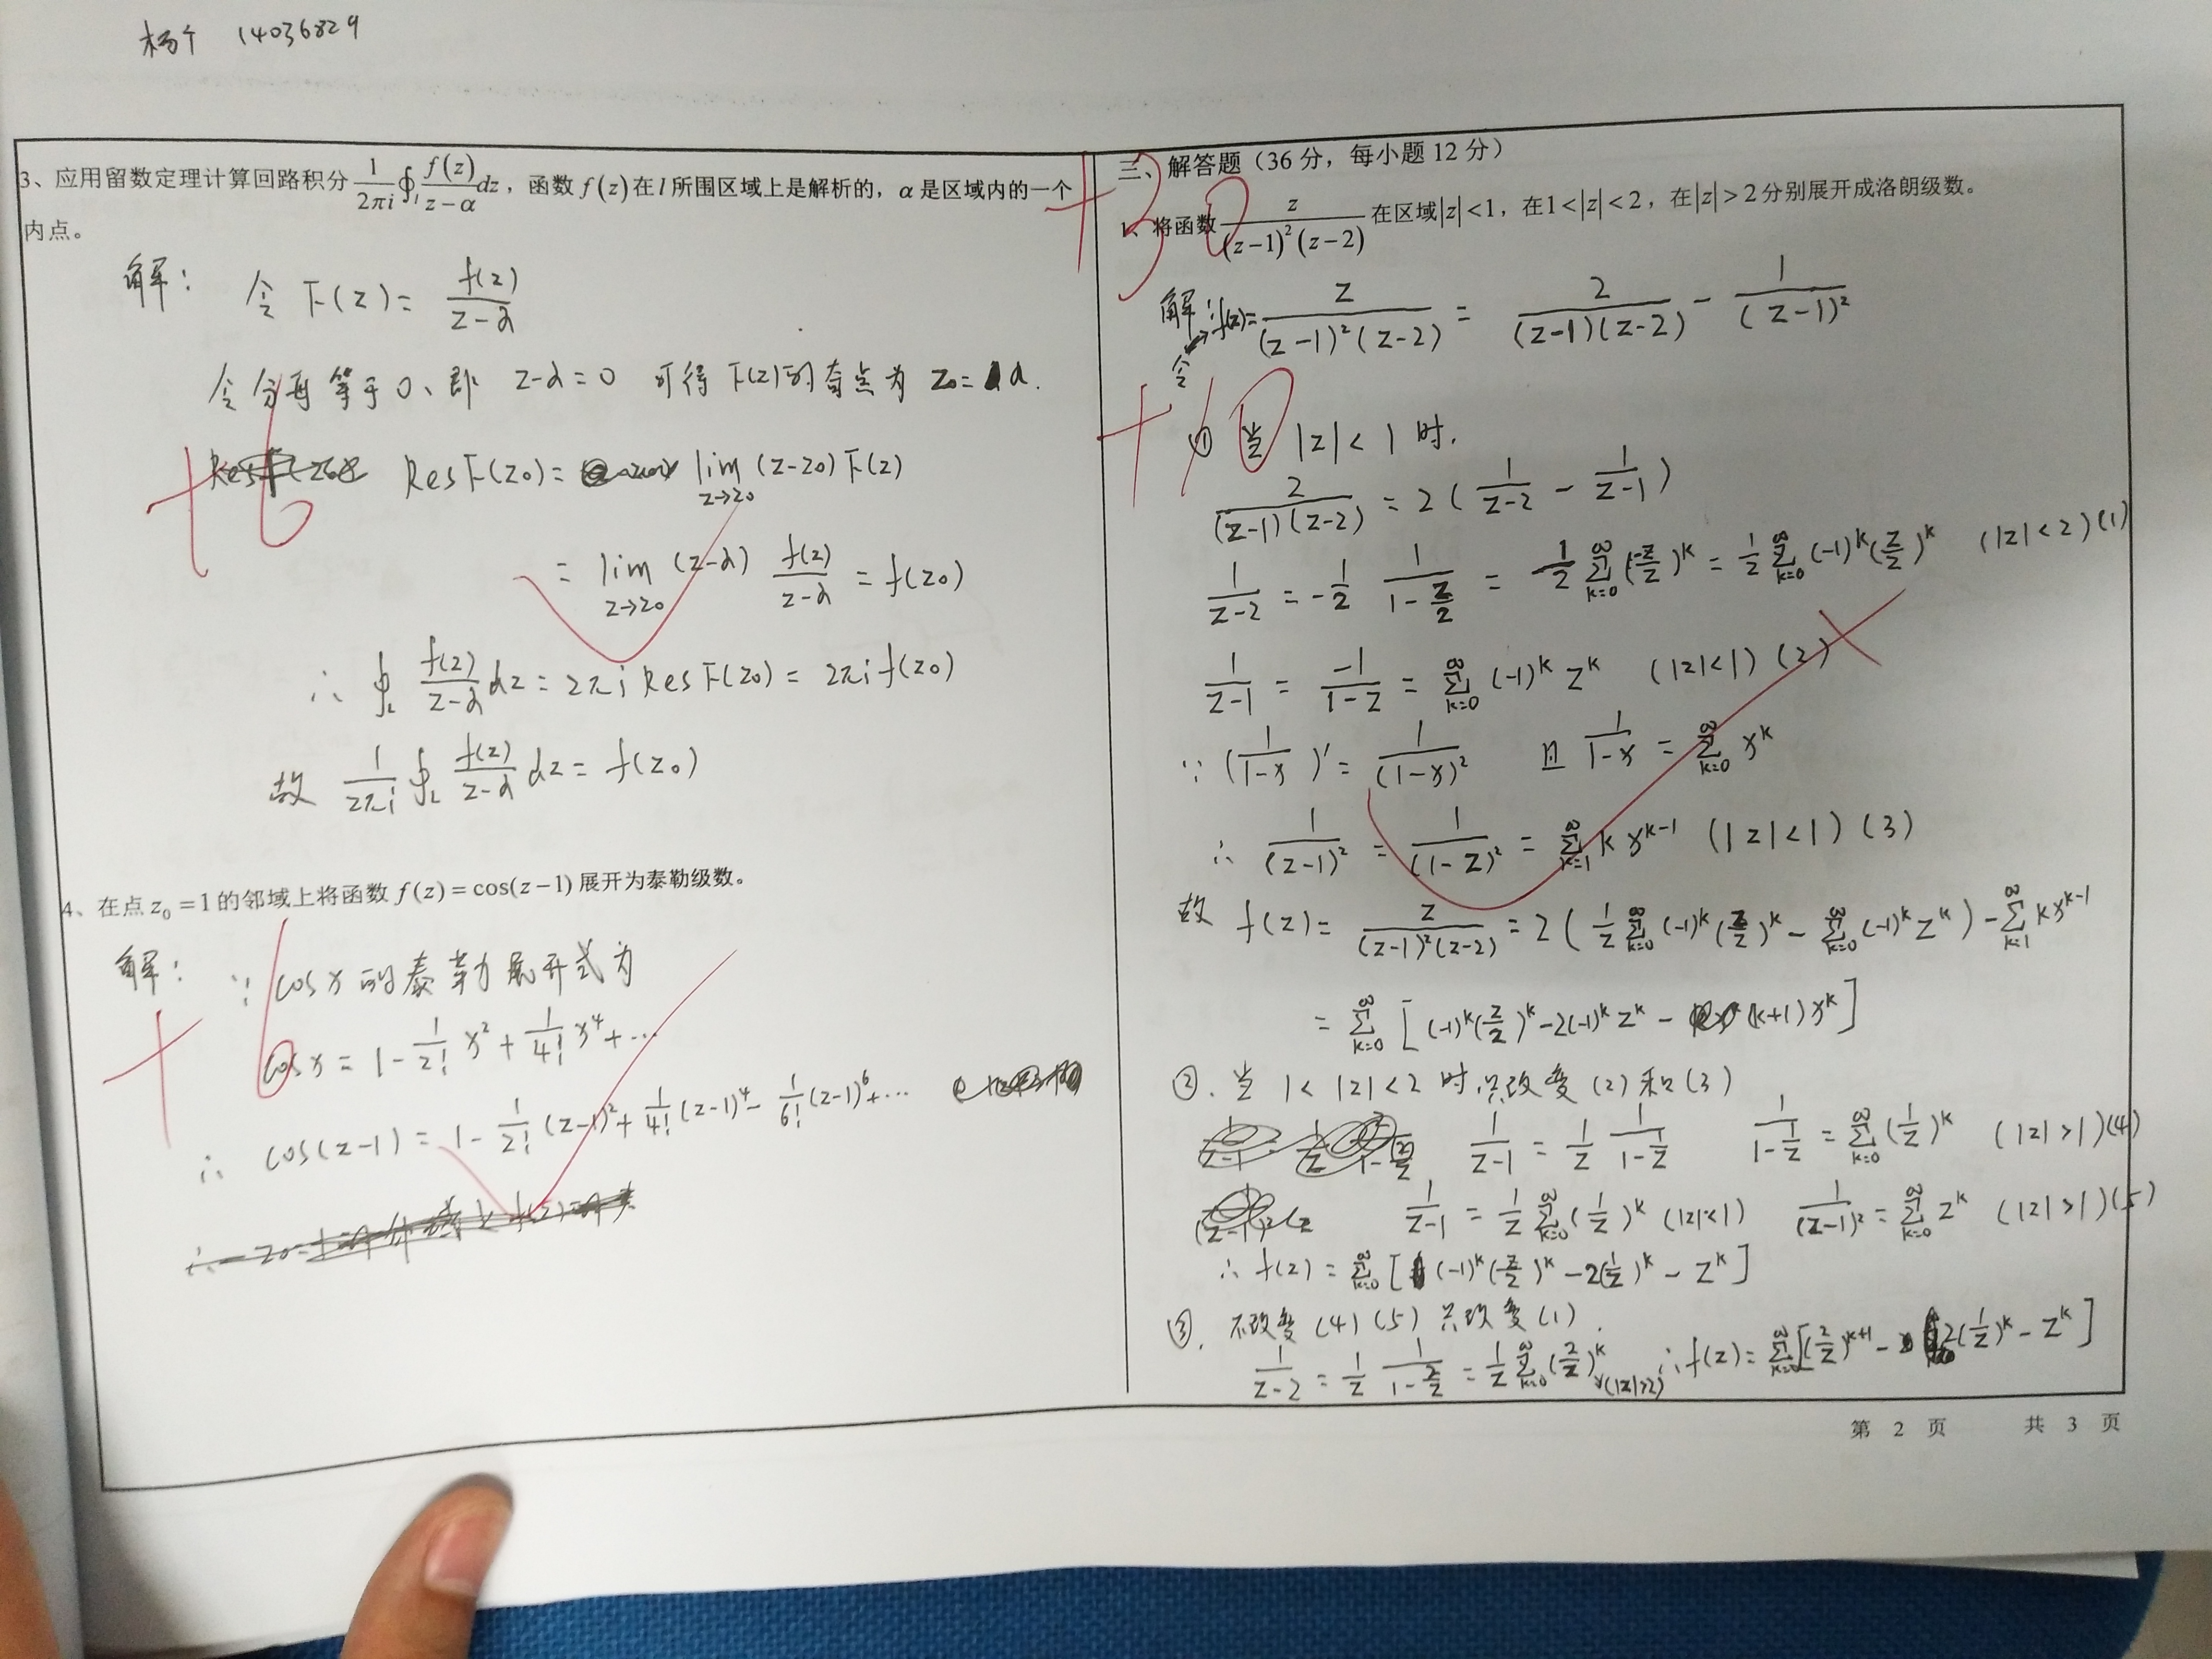 杨个 14036829
3、应用留数定理计算回路积分 \frac{1}{2πi}∮_l \frac{f(z)}{z-α}dz，函数 f(z) 在 l 所围区域上是解析的，α 是区域内的一个
内点。
解： 令 F(z) = \frac{f(z)}{z-α}
令分母等于0、即 z-α=0 可得 F(z)的奇点为 z₀=α.
Res F(z₀) = lim_{z→z₀} (z-z₀) F(z)
= lim_{z→z₀} (z-α) \frac{f(z)}{z-α} = f(z₀)
∴ ∮_L \frac{f(z)}{z-α} dz = 2πi Res F(z₀) = 2πi f(z₀)
故 \frac{1}{2πi} ∮_L \frac{f(z)}{z-α} dz = f(z₀)
+6
4、在点 z₀=1 的邻域上将函数 f(z)=cos(z-1) 展开为泰勒级数。
解： ∵ cos x 的泰勒展开式为
cos x = 1 - \frac{1}{2!} x² + \frac{1}{4!} x⁴ + ...
∴ cos(z-1) = 1 - \frac{1}{2!}(z-1)² + \frac{1}{4!}(z-1)⁴ - \frac{1}{6!}(z-1)⁶ + ...
+6
+30
三、解答题（36 分，每小题 12 分）
1、将函数 \frac{z}{(z-1)²(z-2)} 在区域|z|<1，在1<|z|<2，在|z|>2分别展开成洛朗级数。
解：令 f(z)= \frac{z}{(z-1)²(z-2)} = \frac{2}{(z-1)(z-2)} - \frac{1}{(z-1)²}
+10
① 当 |z|<1 时.
\frac{2}{(z-1)(z-2)} = 2( \frac{1}{z-2} - \frac{1}{z-1} )
\frac{1}{z-2} = -\frac{1}{2} \frac{1}{1-\frac{z}{2}} = -\frac{1}{2} \sum_{k=0}^{∞} (\frac{-z}{2})^k = \frac{1}{2} \sum_{k=0}^{∞} (-1)^k (\frac{z}{2})^k (|z|<2) (1)
\frac{1}{z-1} = \frac{-1}{1-z} = \sum_{k=0}^{∞} (-1)^k z^k (|z|<1) (2)
∵ (\frac{1}{1-x})' = \frac{1}{(1-x)²} 且 \frac{1}{1-x} = \sum_{k=0}^{∞} x^k
∴ \frac{1}{(z-1)²} = \frac{1}{(1-z)²} = \sum_{k=1}^{∞} k x^{k-1} (|z|<1) (3)
故 f(z) = \frac{z}{(z-1)²(z-2)} = 2( \frac{1}{2} \sum_{k=0}^{∞} (-1)^k (\frac{z}{2})^k - \sum_{k=0}^{∞} (-1)^k z^k ) - \sum_{k=1}^{∞} k x^{k-1}
= \sum_{k=0}^{∞} [ (-1)^k (\frac{z}{2})^k - 2(-1)^k z^k - (k+1) x^k ]
②. 当 1<|z|<2 时,只改变 (2) 和 (3)
\frac{1}{z-1} = \frac{1}{z} \frac{1}{1-\frac{1}{z}} \frac{1}{1-\frac{1}{z}} = \sum_{k=0}^{∞} (\frac{1}{z})^k (|z|>1) (4)
\frac{1}{z-1} = \frac{1}{z} \sum_{k=0}^{∞} (\frac{1}{z})^k (|z|<1) \frac{1}{(z-1)²} = \sum_{k=0}^{∞} z^k (|z|>1) (5)
∴ f(z) = \sum_{k=0}^{∞} [ (-1)^k (\frac{z}{2})^k - 2(\frac{1}{z})^k - z^k ]
③. 不改变 (4) (5) 只改变 (1).
\frac{1}{z-2} = \frac{1}{z} \frac{1}{1-\frac{2}{z}} = \frac{1}{z} \sum_{k=0}^{∞} (\frac{2}{z})^k (|z|>2) ∴ f(z) = \sum_{k=0}^{∞} [ (\frac{2}{z})^{k+1} - 2(\frac{1}{z})^k - z^k ]
第 2 页 共 3 页